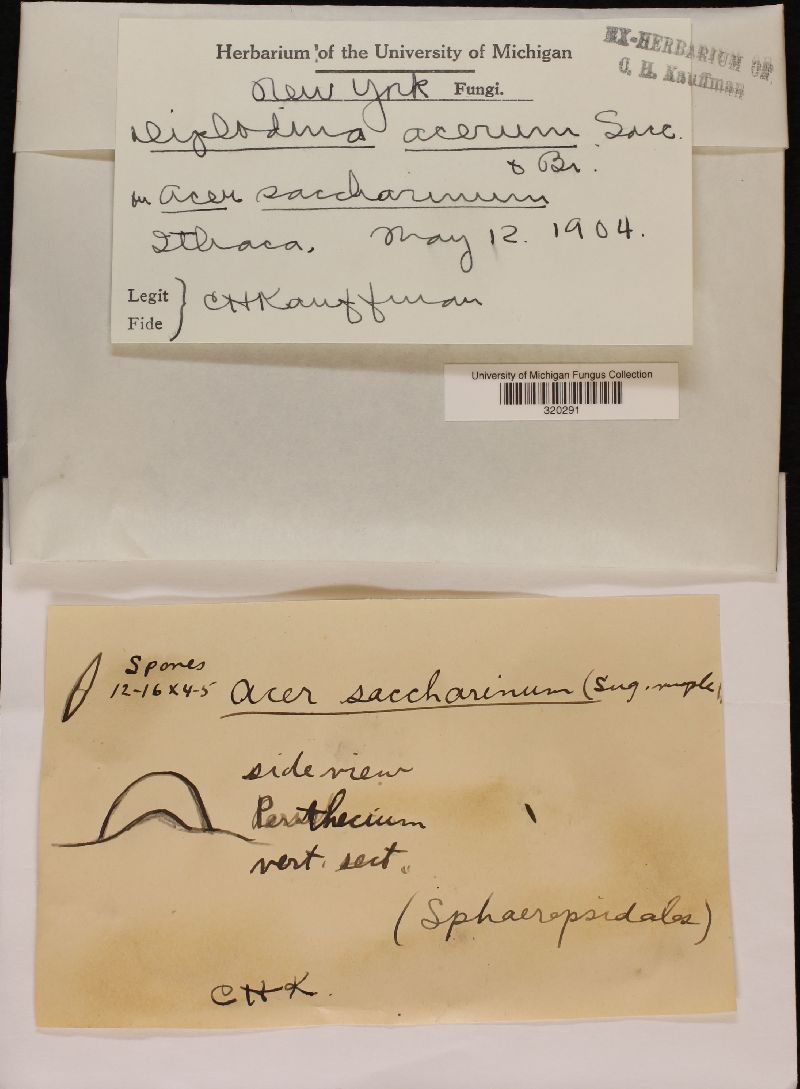 Herbarium of the University of Michigan
EX-HERBARIUM OF
C. H. Kauffman
New York Fungi.
Diplodina acerum Sacc.
& Br.
on Acer saccharinum
Ithaca, May 12. 1904.
Legit
Fide } CHKauffman
University of Michigan Fungus Collection
320291
Spores
12-16 x 4-5
Acer saccharinum (Sug. maple)
side view
Perithecium
vert. sect.
(Sphaeropsidales)
CHK.